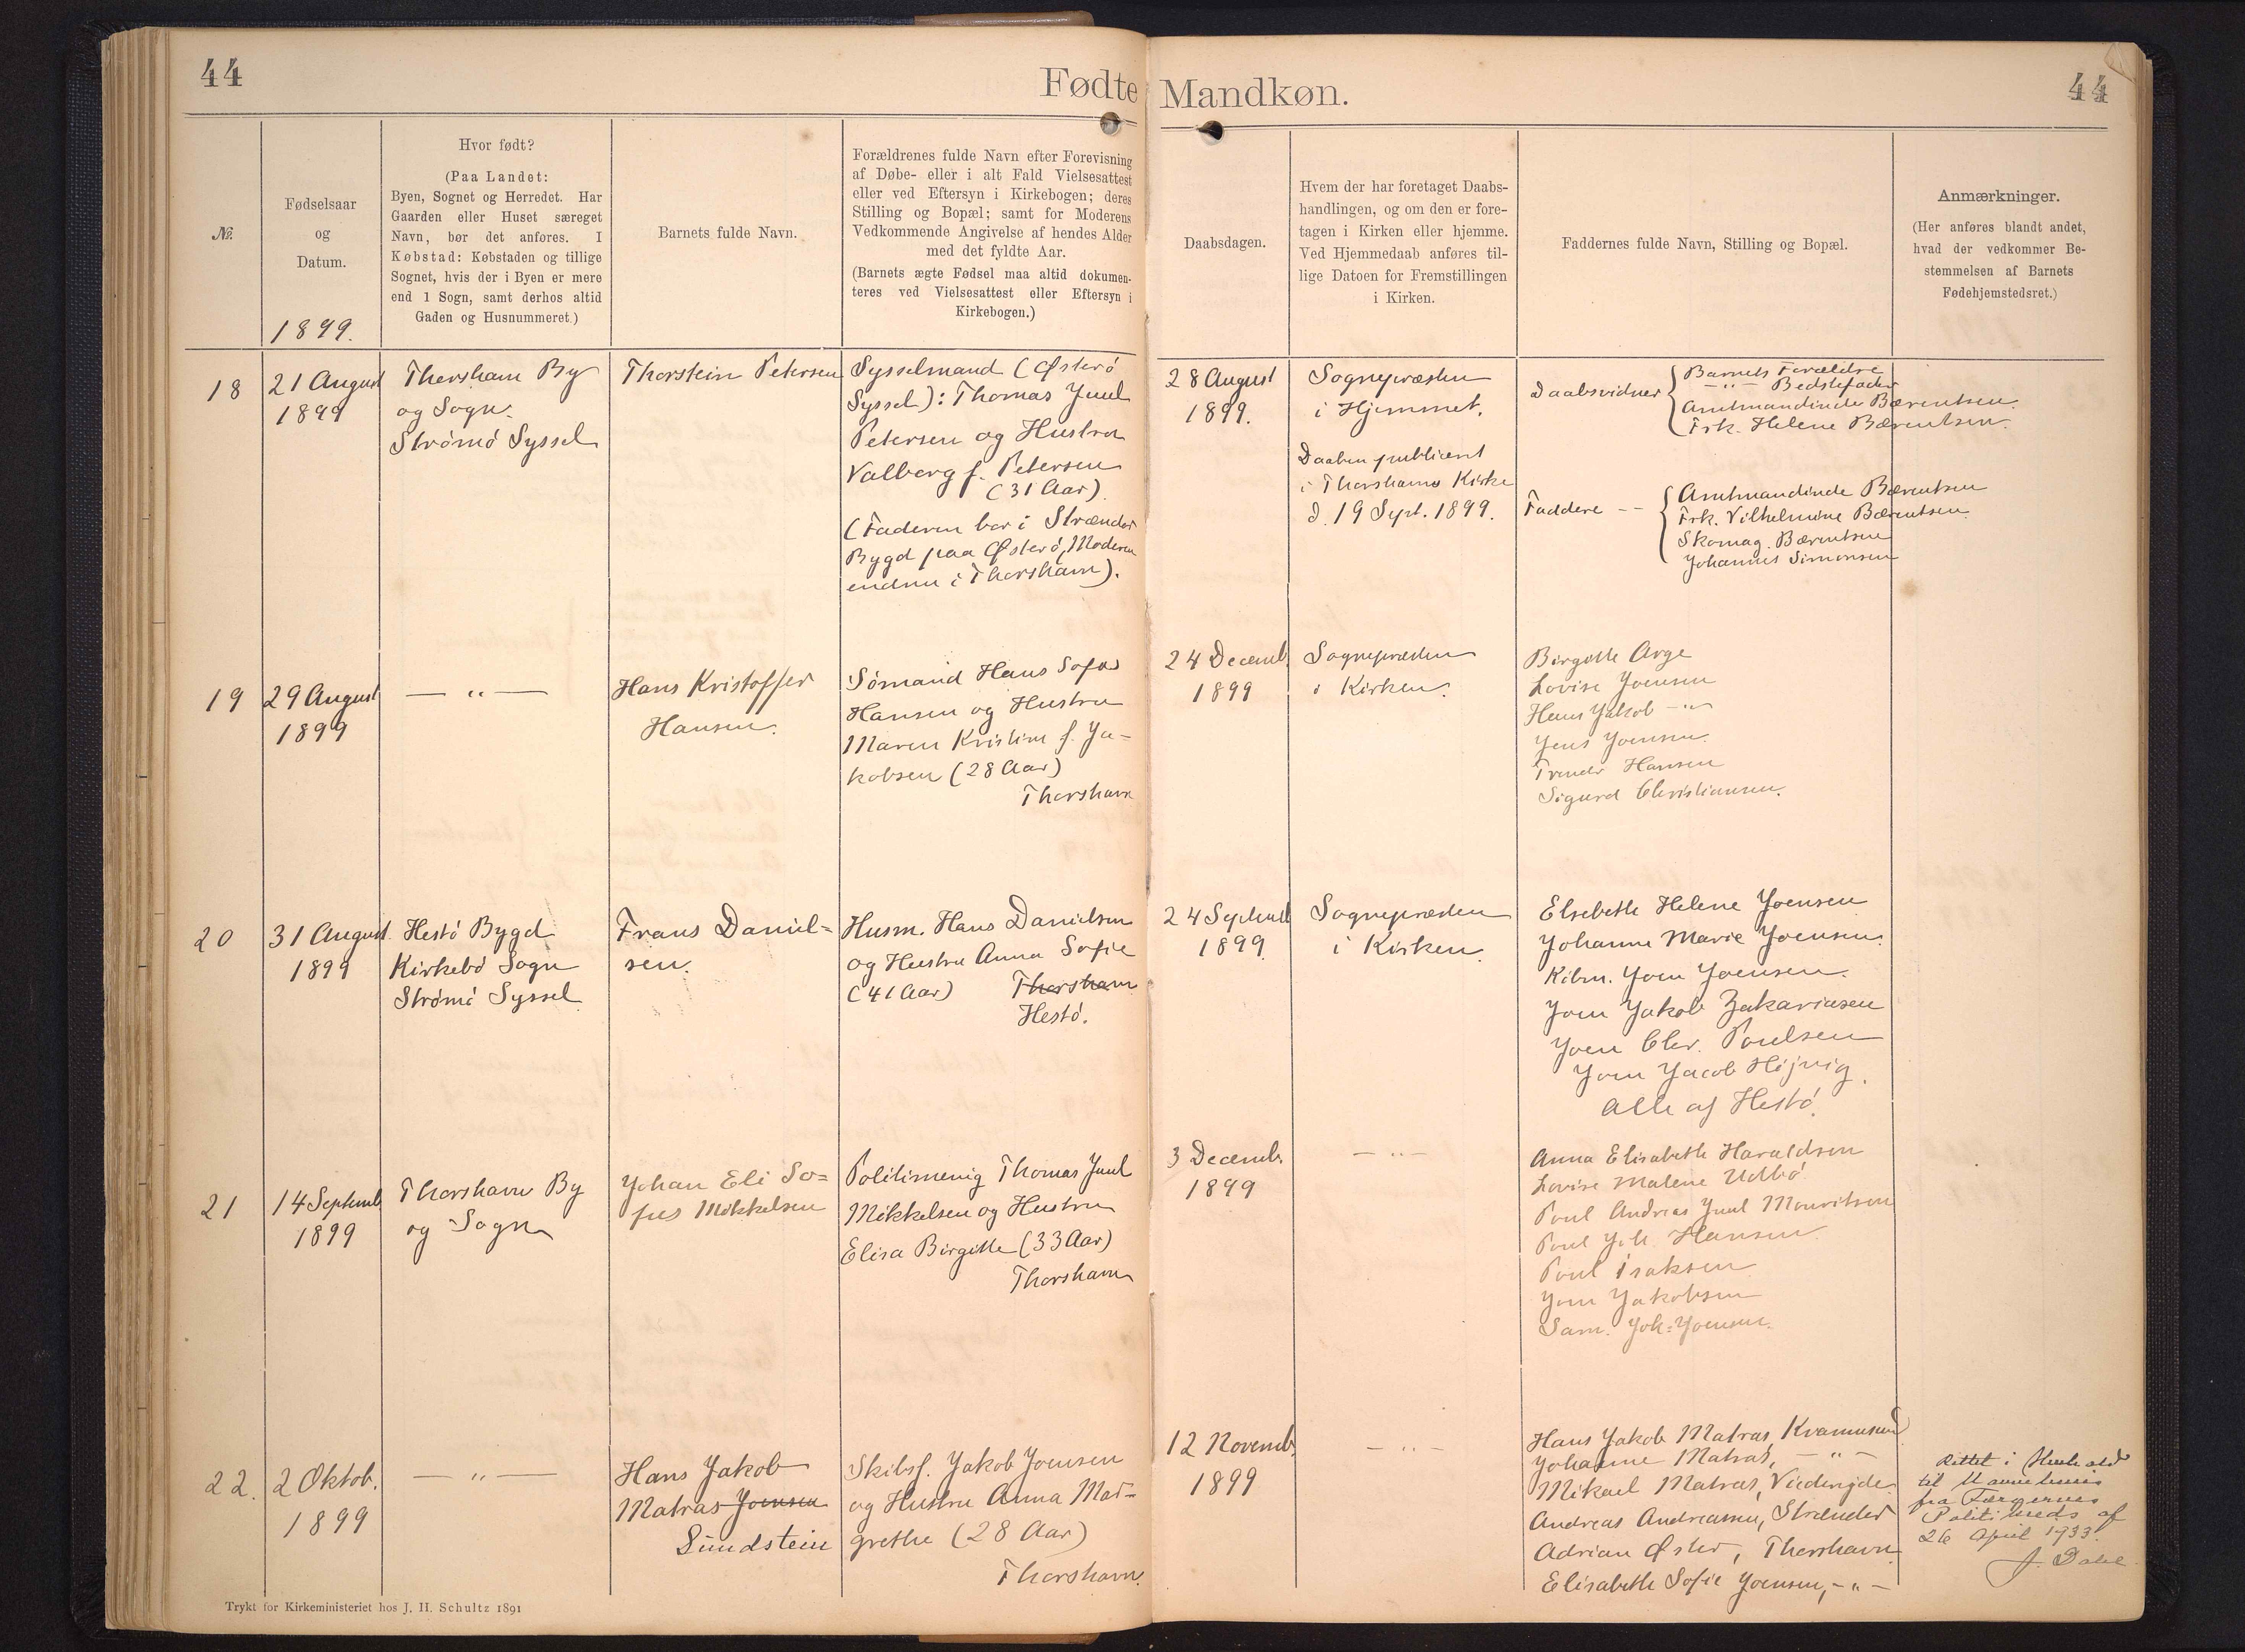 44
Fødte Mandkøn.
44
№.
Fødselsaar
og
Datum.
1899.
Hvor født?
(Paa Landet:
Byen, Sognet og Herredet. Har
Gaarden eller Huset særeget
Navn, bør det anføres. I
Købstad: Købstaden og tillige
Sognet, hvis der i Byen er mere
end 1 Sogn, samt derhos altid
Gaden og Husnummeret.)
Barnets fulde Navn.
Forældrenes fulde Navn efter Forevisning
af Døbe- eller i alt Fald Vielsesattest
eller ved Eftersyn i Kirkebogen; deres
Stilling og Bopæl; samt for Moderens
Vedkommende Angivelse af hendes Alder
med det fyldte Aar.
(Barnets ægte Fødsel maa altid dokumen-
teres ved Vielsesattest eller Eftersyn i
Kirkebogen.)
Daabsdagen.
Hvem der har foretaget Daabs-
handlingen, og om den er fore-
tagen i Kirken eller hjemme.
Ved Hjemmedaab anføres til-
lige Datoen for Fremstillingen
i Kirken.
Faddernes fulde Navn, Stilling og Bopæl.
Anmærkninger.
(Her anføres blandt andet,
hvad der vedkommer Be-
stemmelsen af Barnets
Fødehjemstedsret.)
18
21 August
1899
Thorshavn By
og Sogn.
Strømø Syssel
Thorstein Petersen
Sysselmand (Østerø
Syssel): Thomas Juul
Petersen og Hustru
Valborg f. Petersen
(31 Aar).
(Faderen bor i Strænder
Bygd paa Østerø, Moderen
endnu i Thorshavn).
28 August
1899.
Sognepræsten
i Hjemmet.
Daaben publiceret
i Thorshavns Kirke
d. 19 Sept. 1899.
Daabsvidner
Barnets Forældre
—〃— Bedstefader
Amtmandinde Bærentsen.
Frk. Helene Bærentsen.
Faddere --
Amtmandinde Bærentsen
Frk. Vilhelmine Bærentsen.
Skomag. Bærentsen
Johannes Simonsen
19
29 August
1899
—〃—
Hans Kristoffer
Hansen.
Sømand Hans Sofus
Hansen og Hustru
Maren Kristine f. Ja-
kobsen (28 Aar)
Thorshavn
24 Decemb.
1899
Sognepræsten
i Kirken.
Birgitte Arge
Lovise Joensen
Hans Jakob -〃-
Jens Joensen.
Hansen
Sigurd Christiansen.
20
31 August
1899
Hestø Bygd
Kirkebø Sogn
Strømø Syssel
Frans Daniel-
sen.
Husm. Hans Danielsen
og Hustru Anna Sofie
(41 Aar) Thorshavn
Hestø.
24 Septemb
1899.
Sognepræsten
i Kirken.
Elsebeth Helene Joensen
Johanne Marie Joensen.
Købm. Joen Joensen.
Joen Jakob Zakariasen
Joen Chr. Poulsen
Joen Jacob Højvig.
Alle af Hestø.
21
14 Septemb
1899
Thorshavn By
og Sogn
Johan Eli So-
fus Mikkelsen
Politimenig Thomas Juul
Mikkelsen og Hustru
Elisa Birgitte (33 Aar)
Thorshavn
3 Decemb.
1899
—〃—
Anna Elisabeth Haraldsen
Lovise Malene Udbø
Poul Andreas Juul Mouritsen
Poul Joh. Hansen.
Poul Isaksen
Joen Jakobsen
Sam. Joh. Joensen.
22.
2 Oktob.
1899
—〃—
Hans Jakob
Matras Joensen
Sundstein
Skibsf. Jakob Joensen
og Hustru Anna Mar-
grethe (28 Aar)
Thorshavn.
12 Novemb.
1899
—〃—
Hans Jakob Matras, Kvannesund
Johanne Matras, —〃—
Mikael Matras, Videreide
Andreas Andreasen, Strænder
Adrian Øster, Thorshavn.
Elisabeth Sofie Joensen, -〃-
Rettet i Henhold
til Navnebevis
fra Færøernes
Politimeds af
26 April 1933.
J. Dahl.
Trykt for Kirkeministeriet hos J. H. Schultz 1891